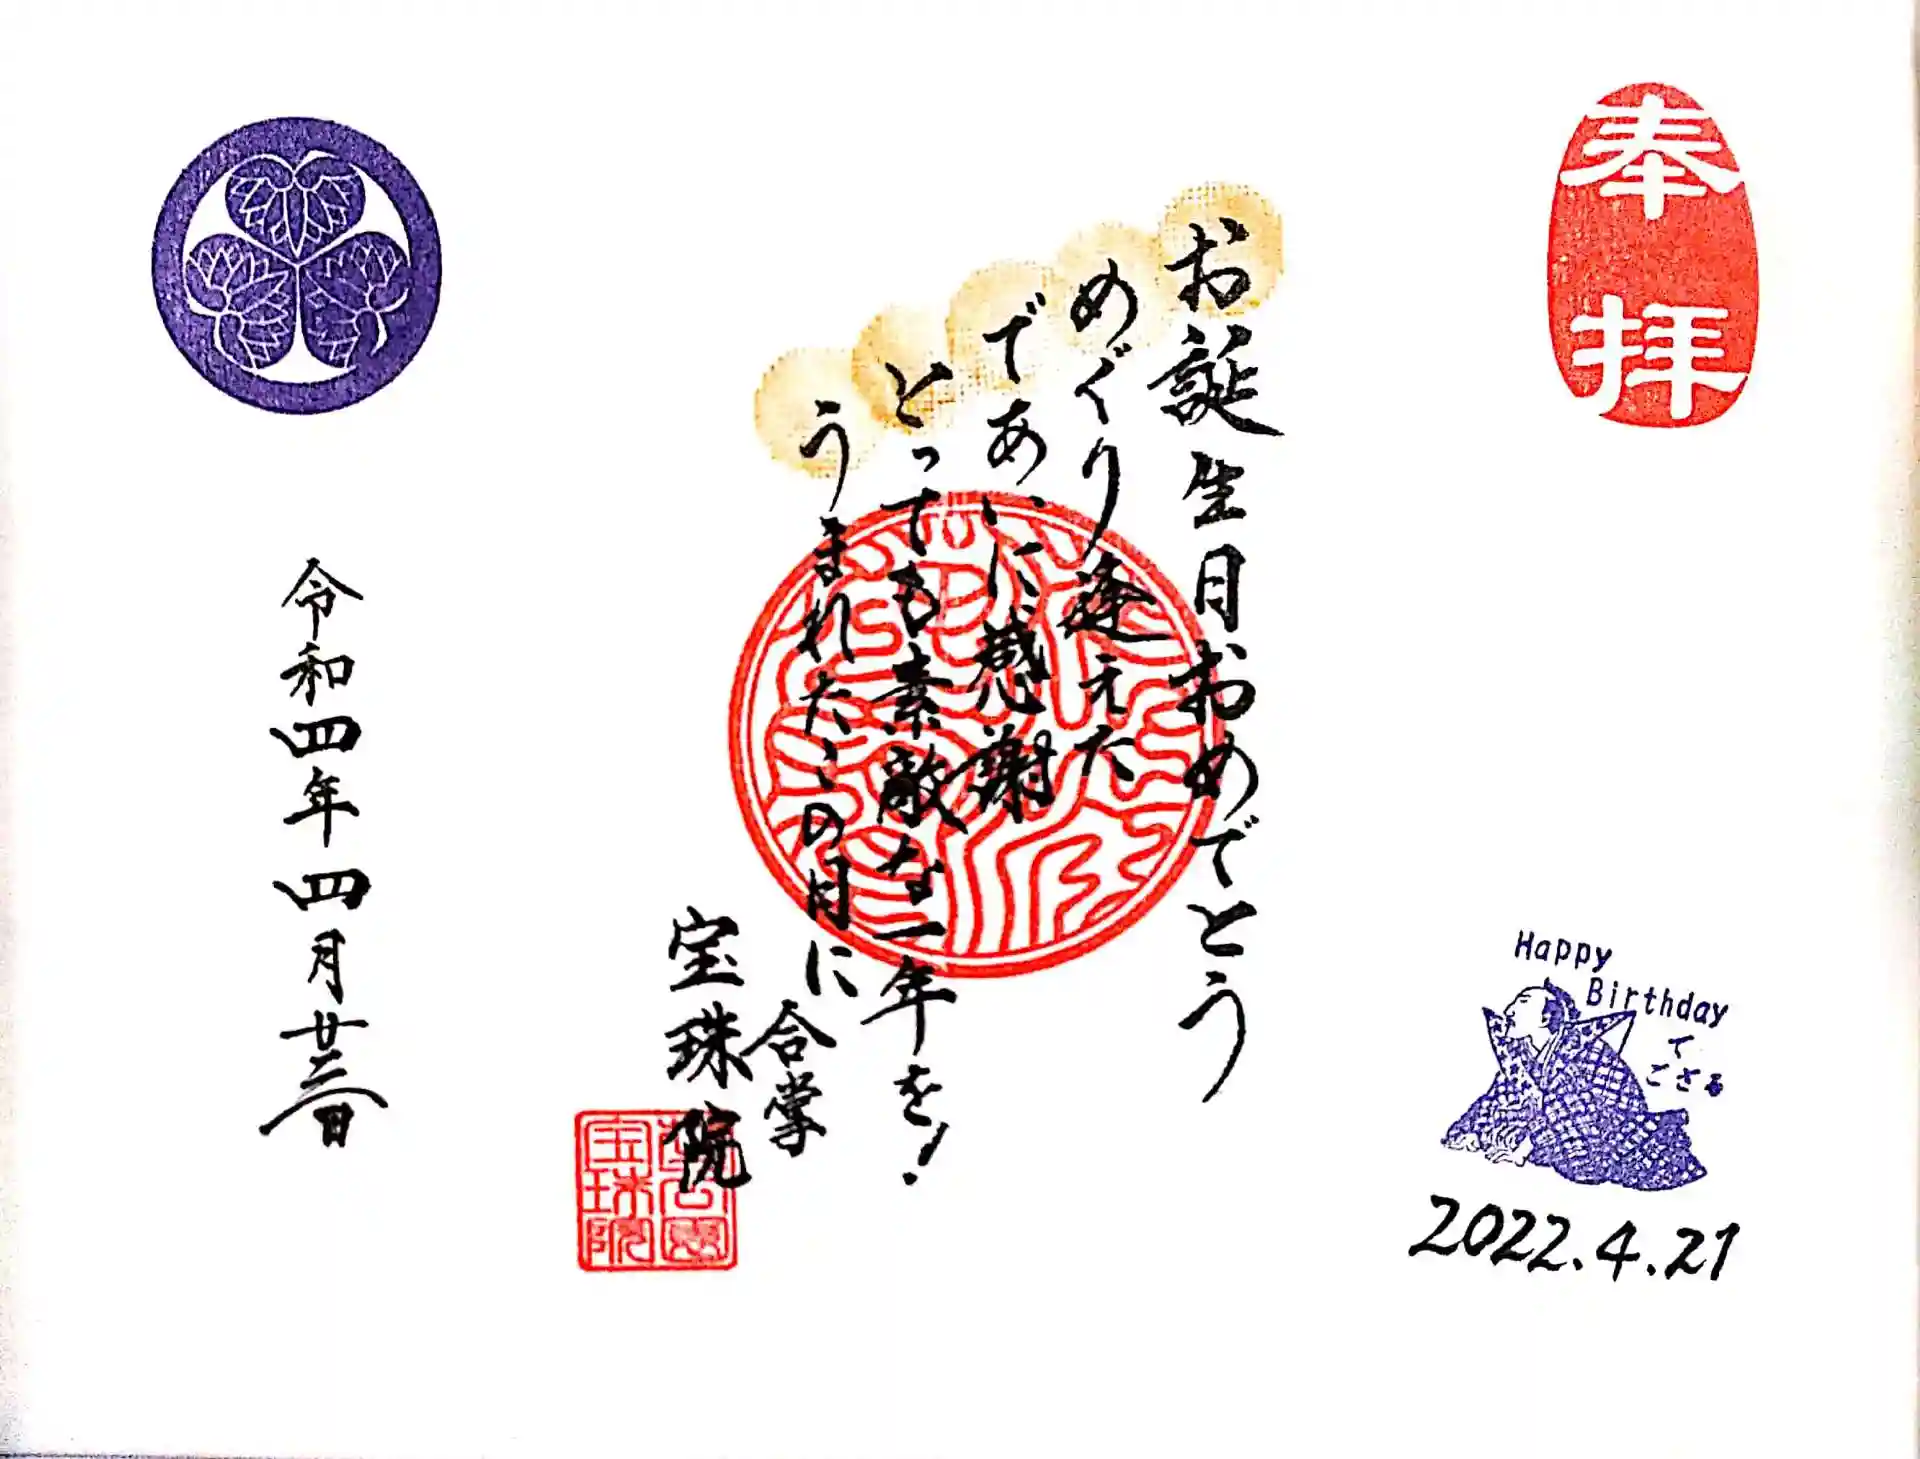 奉拝
お誕生日おめでとう
めぐり逢えた
であいに感謝
とっても素敵な一年を!
うまれたこの日に
合掌
宝珠院
宝珠院
令和四年四月廿二日
Happy
Birthday
で
ござる
2022.4.21